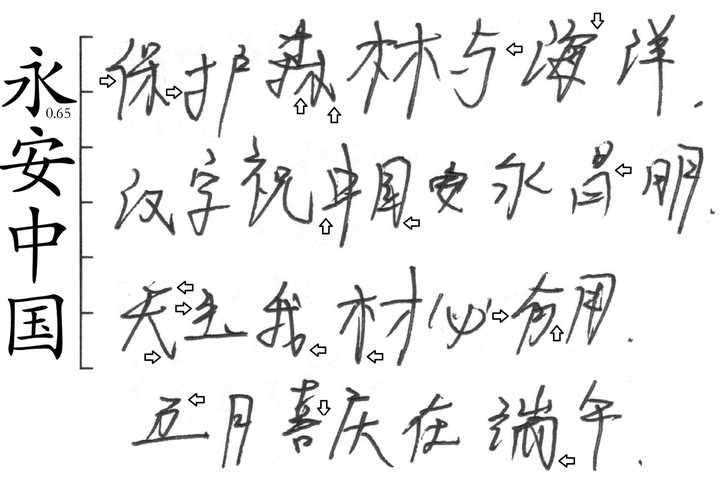 永安中国
0.65
保护森林与海洋.
汉字祝中国永昌明.
天生我材必有用.
五月喜庆在端午.